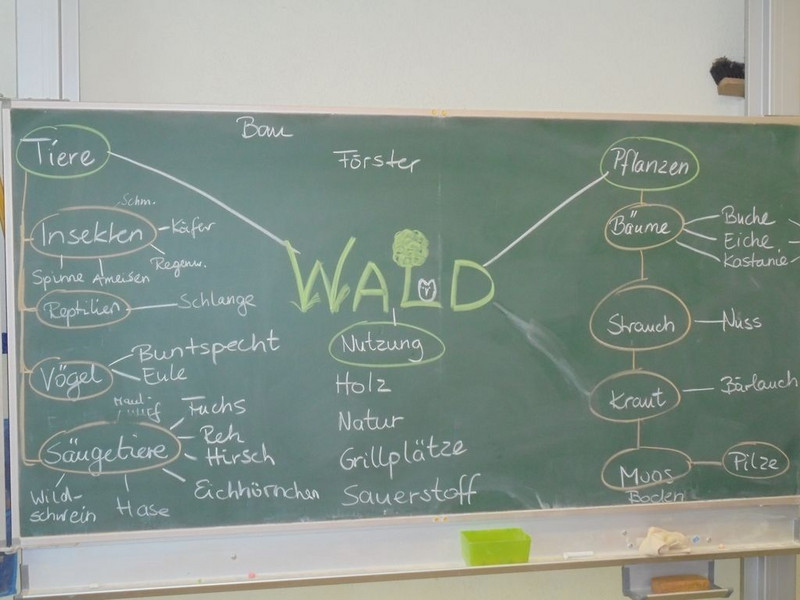 Bau
Förster
Tiere
Schm.
Insekten
Käfer
Regenw.
Spinne
Ameisen
Reptilien
Schlange
Vögel
Buntspecht
Eule
Säugetiere
Fuchs
Reh
Hirsch
Eichhörnchen
Hase
Wild-
schwein
WALD
Nutzung
Holz
Natur
Grillplätze
Sauerstoff
Pflanzen
Bäume
Buche
Eiche
Kastanie
Strauch
Nuss
Kraut
Bärlauch
Moos
Boden
Pilze